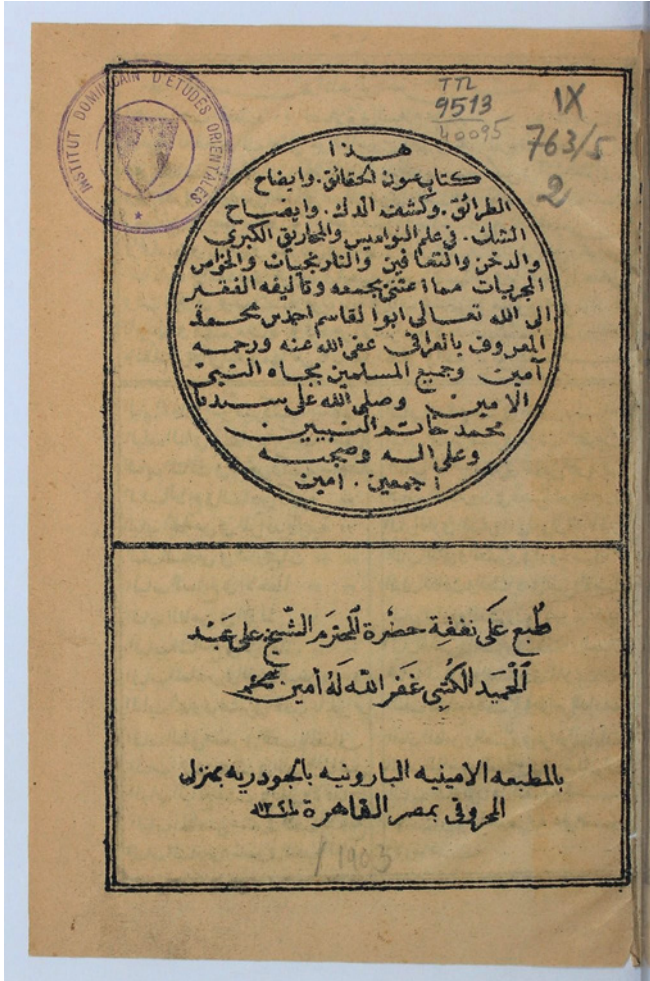 INSTITUT DOMINICAIN D'ETUDES ORIENTALES
TTL
9513
40095
IX
763/5
2
هذا
كتاب عيون الحقائق. وايضاح
الطرائق. وكشف الدك. وايضاح
الشك. في علم النواميس والمخاريق الكبرى
والدخن والتعافين والنارنجيات والخواص
المجربات مما اعتنى بجمعه وتأليفه الفقير
الى الله تعالى ابوالقاسم احمد بن محمد
المعروف بالعراقى عفى الله عنه ورحمه
آمين وجميع المسلمين بجاه النبى
الامين وصلى الله على سيدنا
محمد خاتم النبيين
وعلى اله وصحبه
اجمعين. امين
طُبع عَلَى نفقة حضرة المحترم الشّيخ على عَبْد
الْحَميد الكُتبِى غَفر اللّه لَهُ أمين
بالمطبعه الامينيه البارونيه بالجودريه بمنزل
المحروقى بمصر القاهرة
/ 1903